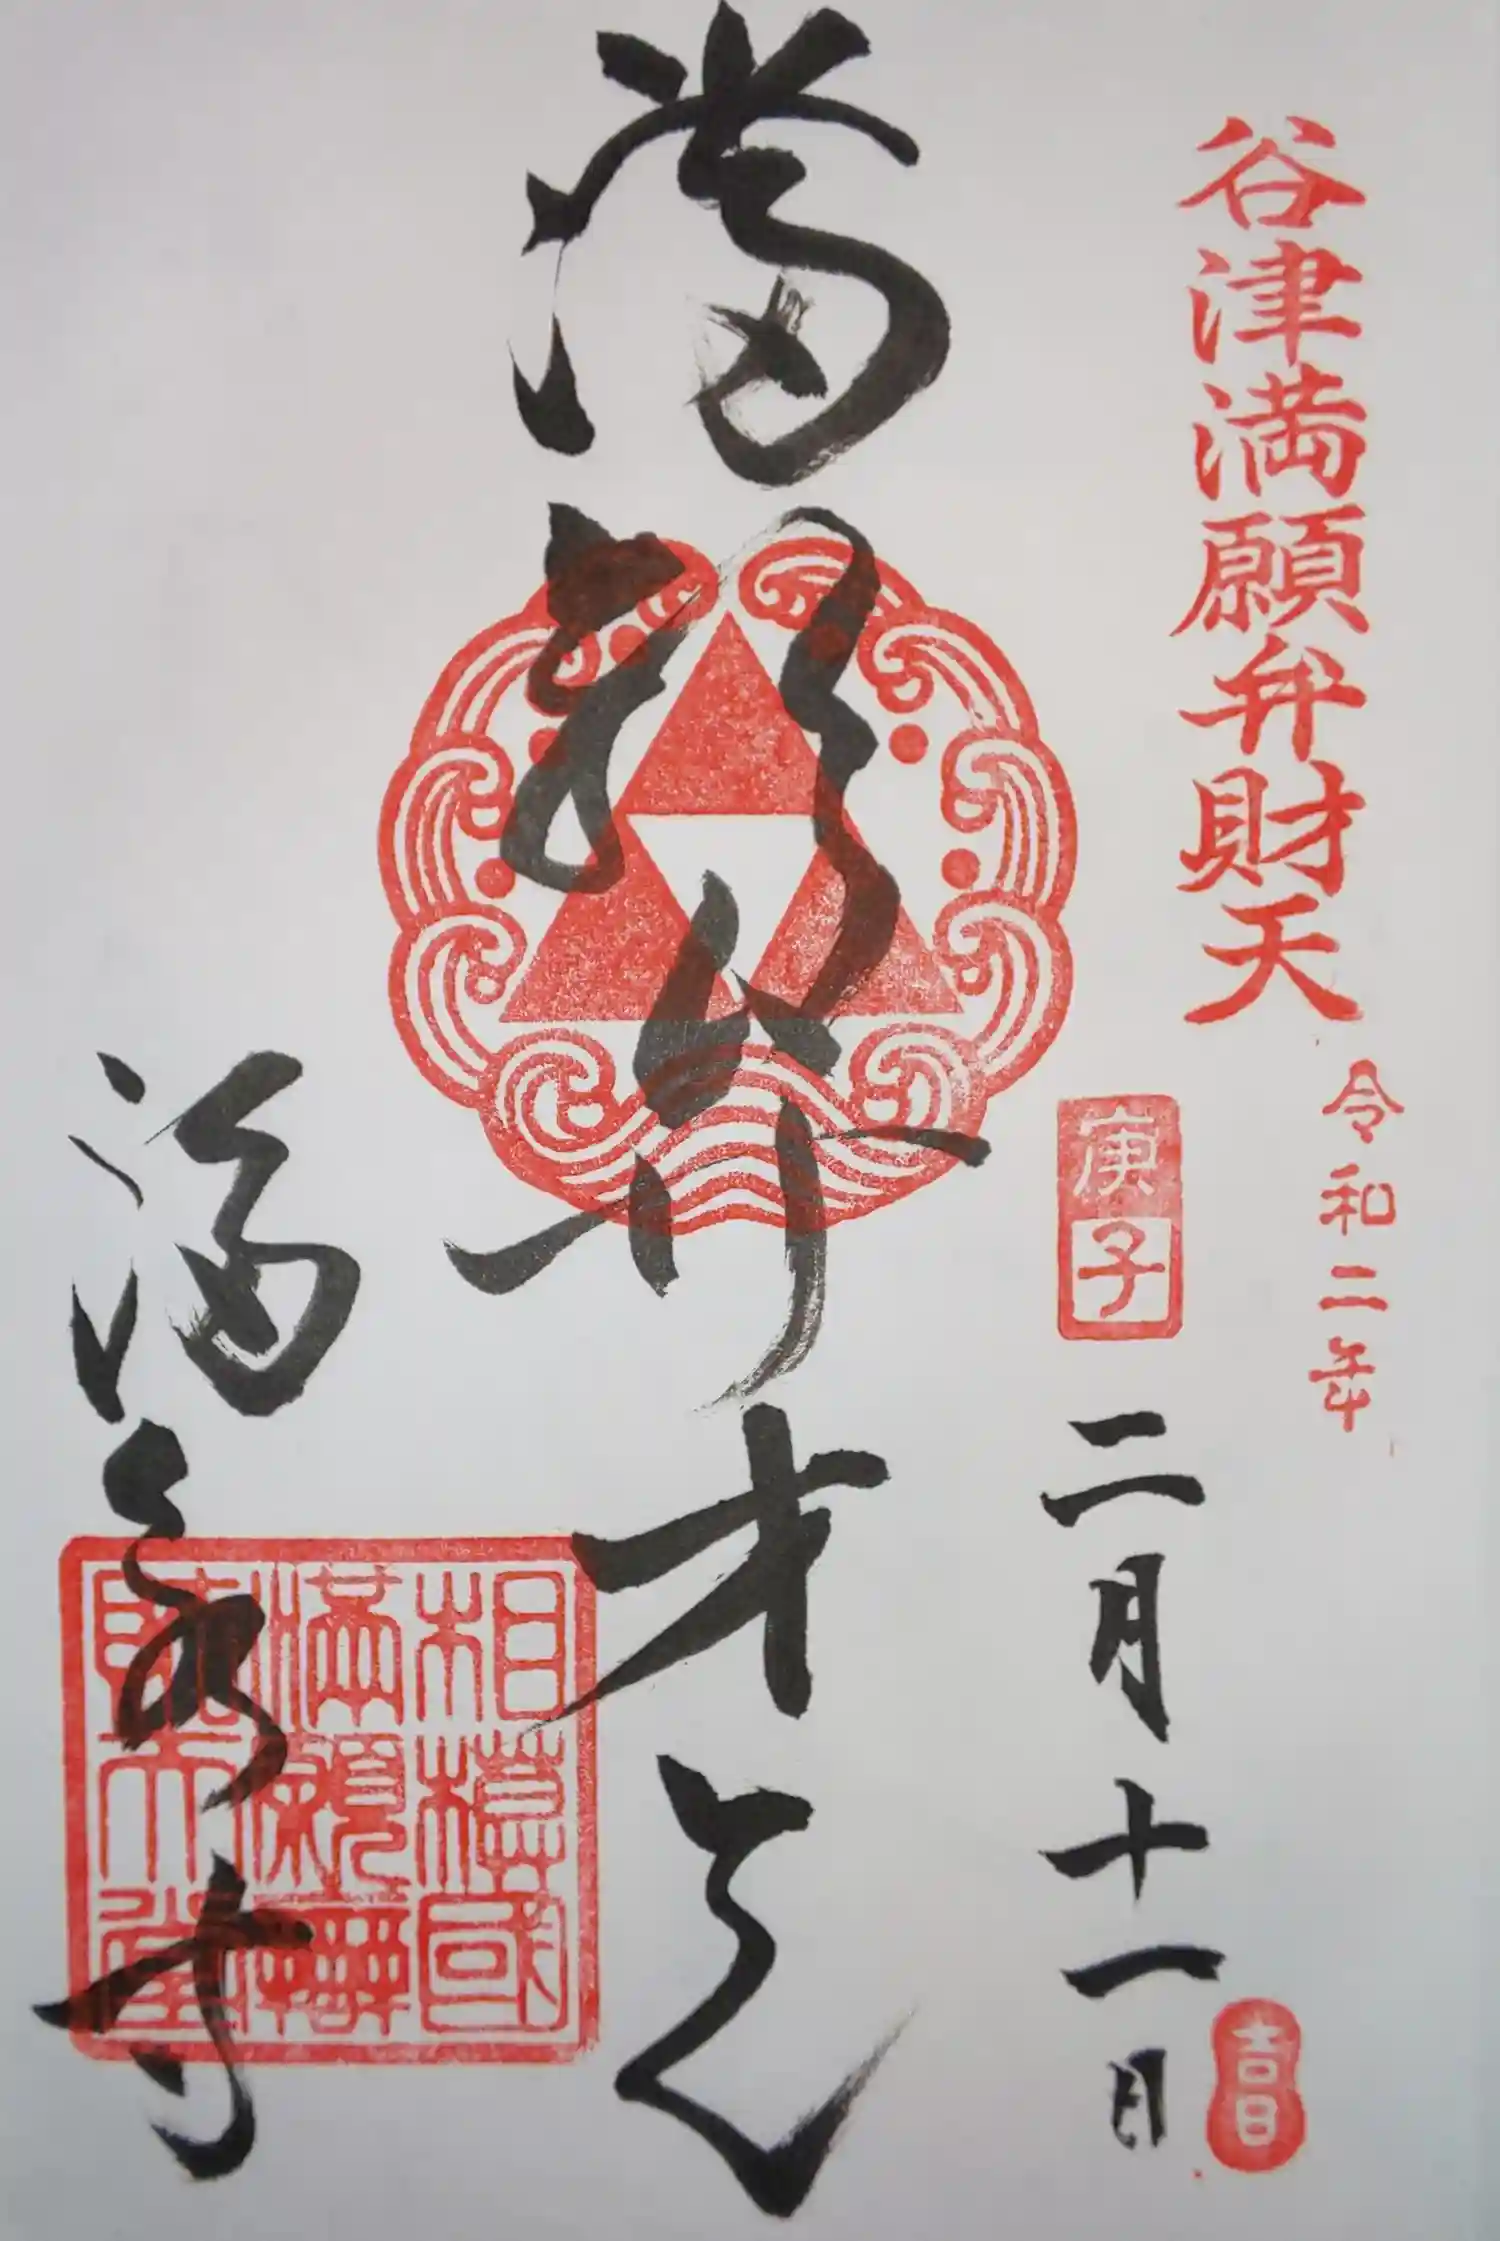 谷津満願弁財天
令和二年
庚子
二月十一日
吉日
満願弁才天
満家寺
相模國
満願
財天堂